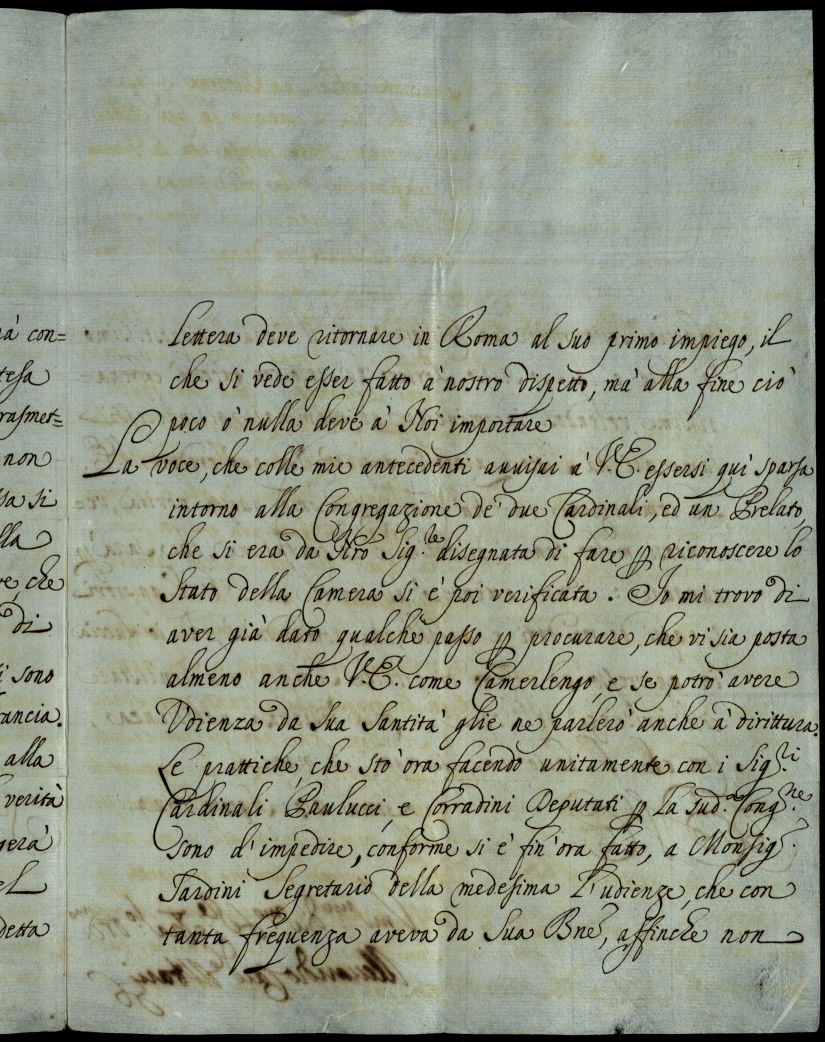 à con=
tesa
rasmet=
non
sa si
lla
ve, che
di
i sono
rancia.
alla
verità
gerà
el
detta
Lettera deve ritornare in Roma al suo primo impiego, il
che si vede esser fatto à nostro dispetto, mà alla fine ciò
poco ò nulla deve à Noi importare
La voce, che colle mie antecedenti avvisai à V.E. essersi quì sparsa
intorno alla Congregazione de' due Cardinali, ed un Prelato,
che si era da Nro Sig.re disegnata di fare p riconoscere lo
Stato della Camera si è poi verificata. Io mi trovo di
aver già dato qualche passo p procurare, che vi sia posta
almeno anche V.E. come Camerlengo, e se potrò avere
Udienza da Sua Santità glie ne parlerò anche à dirittura.
Le prattiche, che stò ora facendo unitamente con i Sig.ri
Cardinali Paulucci, e Corradini Deputati p la sud.a Cong.ne
sono d'impedire, conforme si è fin'ora fatto, a Monsig.r
Tardini Segretario della medesima l'udienze, che con
tanta frequenza aveva da Sua Bne, affinche non